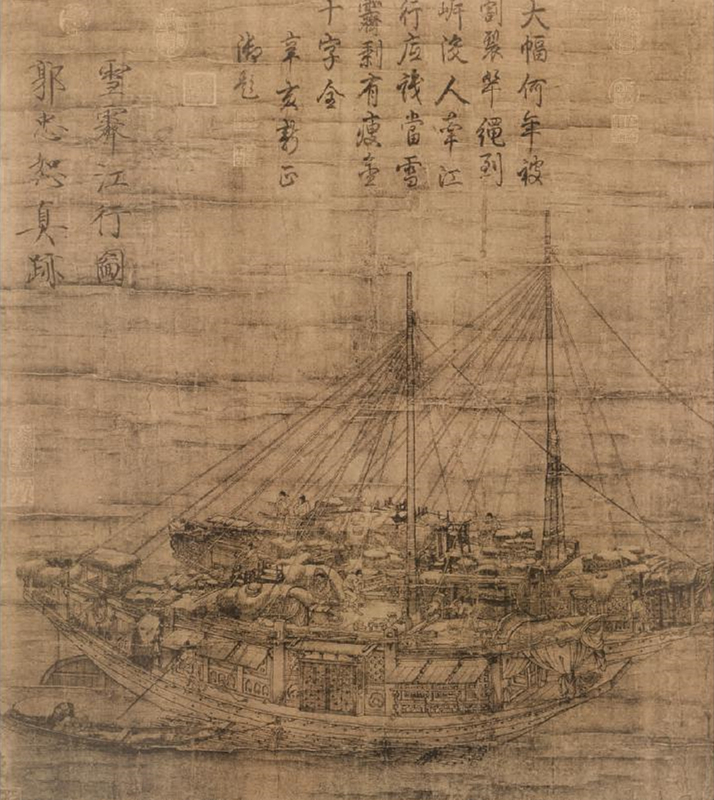 大幅何年被
割裂繩到
岍沒人牽江
行應識當雪
霽剩有瘦金
十字全
辛亥新正
御題
雪霽江行圖
郭忠恕真跡